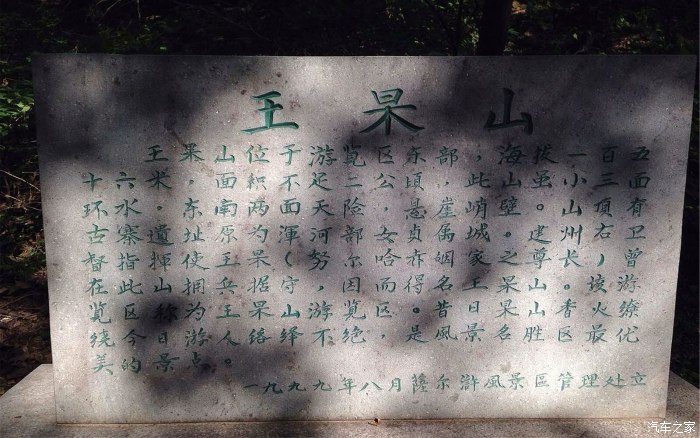 王果山
王果山位于游览区东部，海拔一百五
十六米，面积不足二公顷，此山虽小三面
环水。东南两面天险，悬崖峭壁。山顶有
古寨遗址，原为渾河部女贞属城。建州右卫
督指揮使王果（努尔哈亦姻家之尊长）曾
在此山拥兵据守，因而得名王果山。垓游
览区称为王果山游览区。昔日果山香火缭
绕，今日游人络绎不绝，是风景名胜区最优
美的景点。
一九九九年八月薩尔滸風景區管理处立
汽车之家